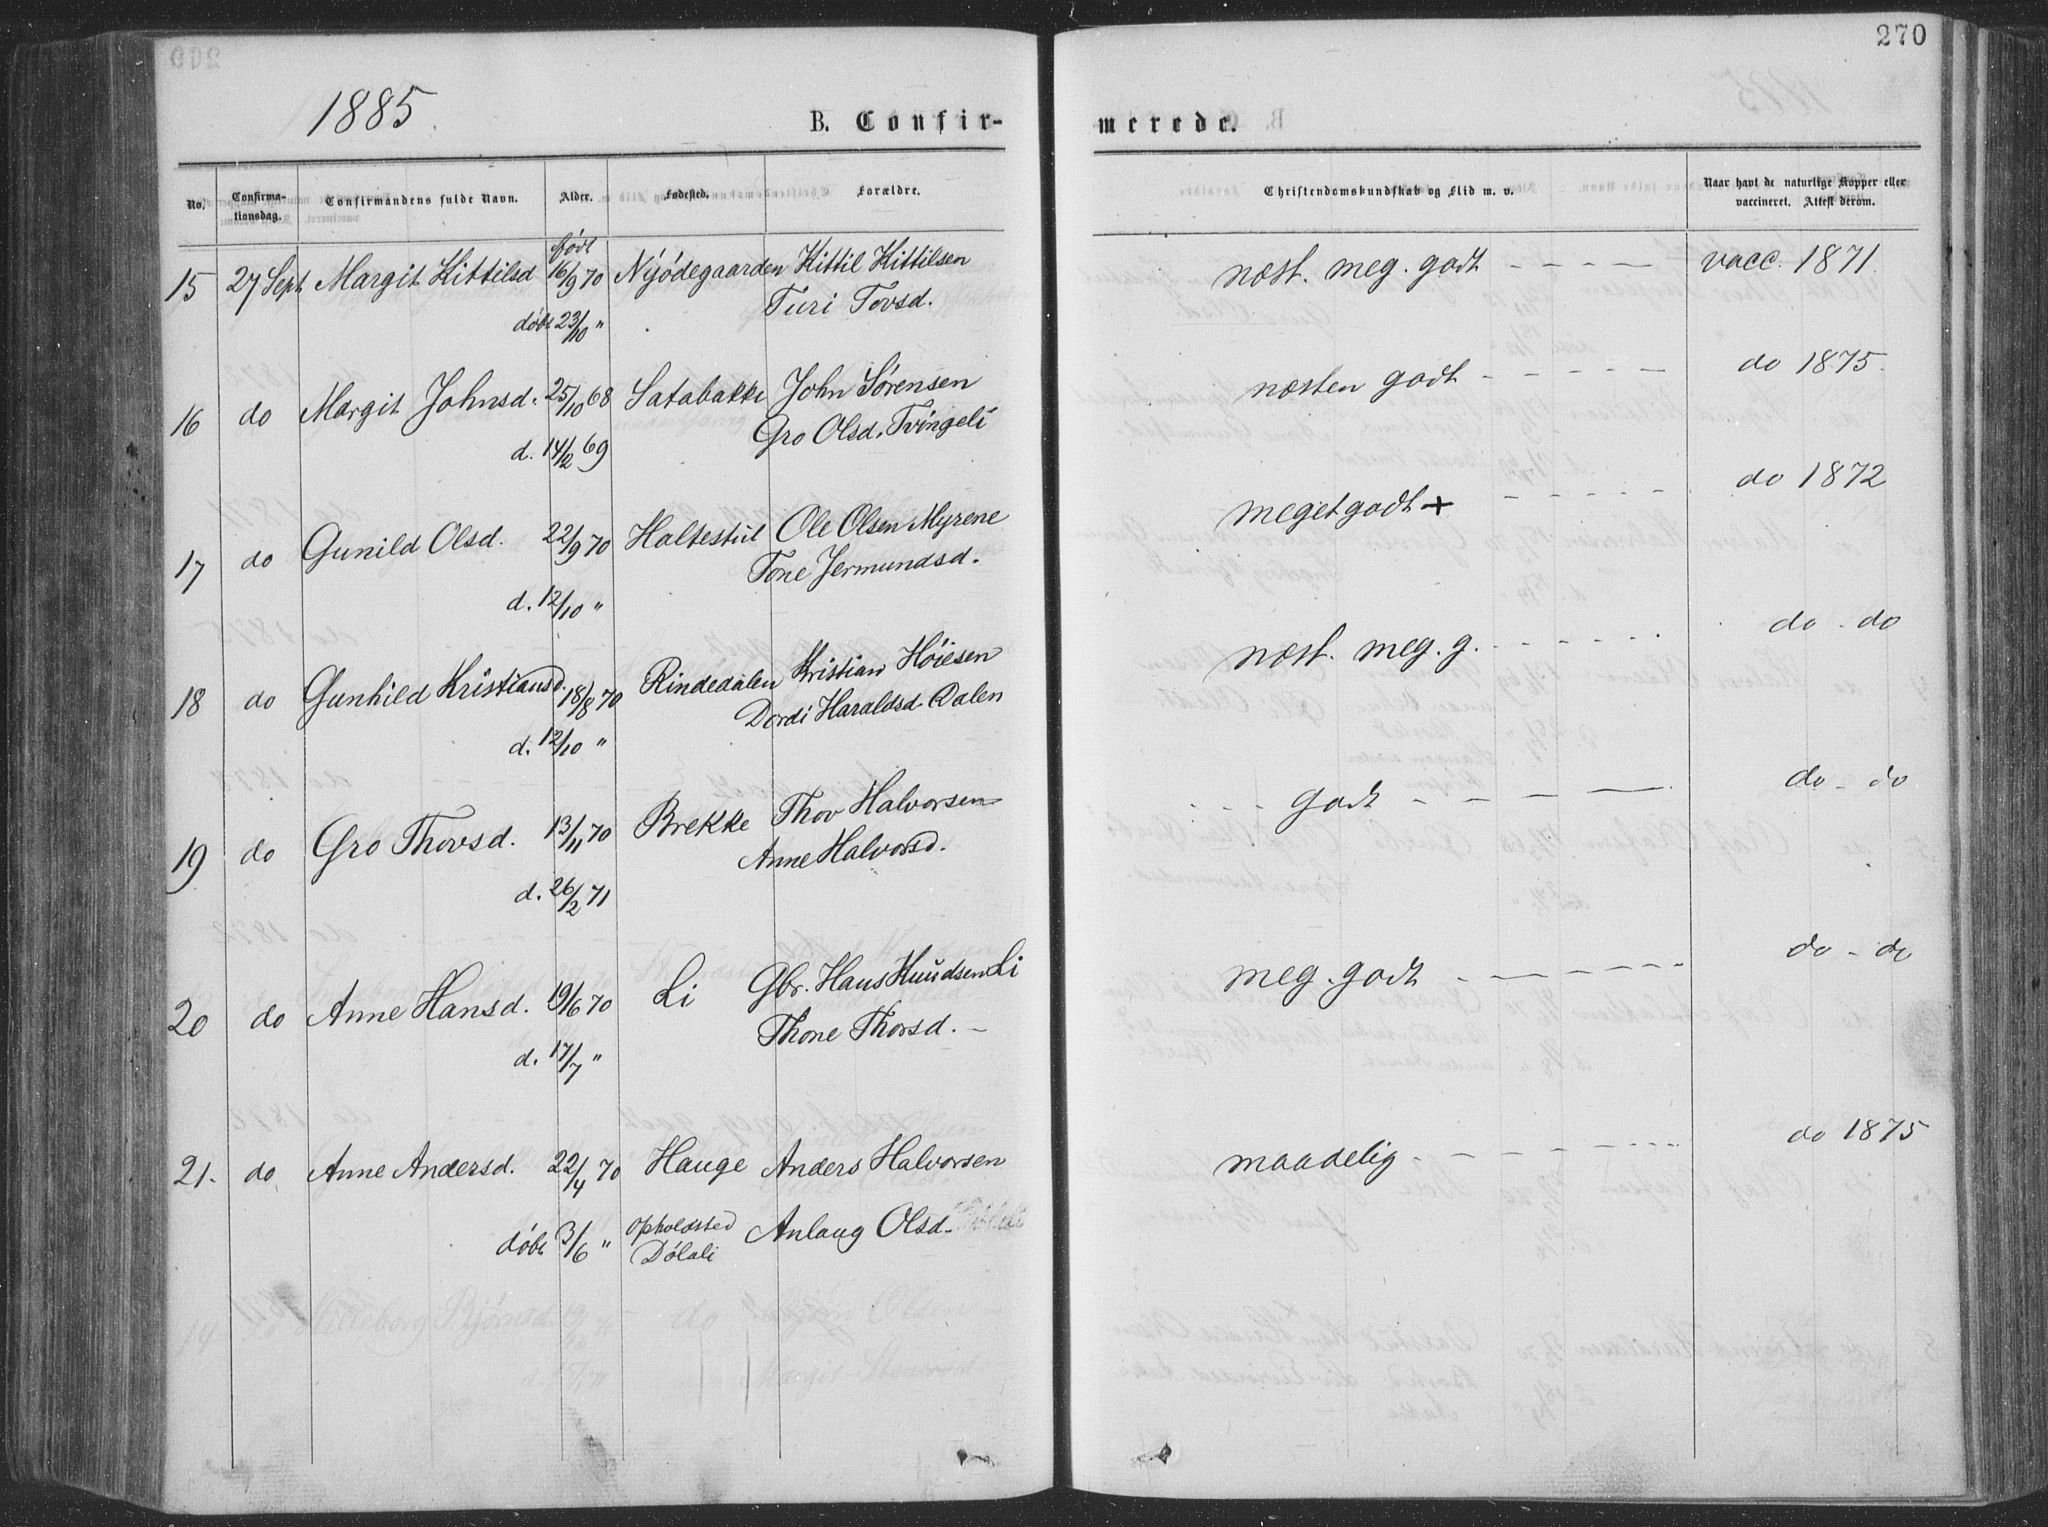 270
1885.
B. Confir- merede.
No. Confirma-tionsdag. Confirmandens fulde Navn. Alder. Fødested. Forældre. Christendomskundskab og Flid m. v. Naar havt de naturlige Kopper eller vaccineret. Attest derom.
født
15 27 Sept Margit Kittilsd 16/9 70 Nyödegaarden Kittil Kittilsen næst. meg. godt - - - - vacc. 1871.
Turi Tovsd.
döbt 23/10 "
16 do Margit Johnsd. 25/10 68 Satabakke John Sörensen næsten godt - - - - - do 1875.
Gro Olsd. Tvingeli
d. 14/2 69
17 do Gunild Olsd. 22/9 70 Haltestul Ole Olsen Myrene meget godt + - - - - - do 1872
Tone Jermundsd.
d. 12/10 "
18 do Gunhild Kristiansd. 18/8 70 Rindedalen Kristian Höiesen næst. meg. g. - - - - do - do
Dordi Haraldsd. Dalen
d. 12/10 "
19 do Gro Thovsd. 13/11 70 Brekke Thov Halvorsen - - - godt - - - - do - do
Anne Halvorsd.
d. 26/2 71
20 do Anne Hansd. 19/6 70 Li Gbr. Hans Knudsen Li meg. godt - - - - - do - do
Thone Thorsd. -
d. 17/7 "
21. do Anne Andersd. 22/4 70 Hauge Anders Halvorsen maadelig - - - - do 1875
döbt 3/6 " Opholdsted Anlaug Olsd.
Dölali